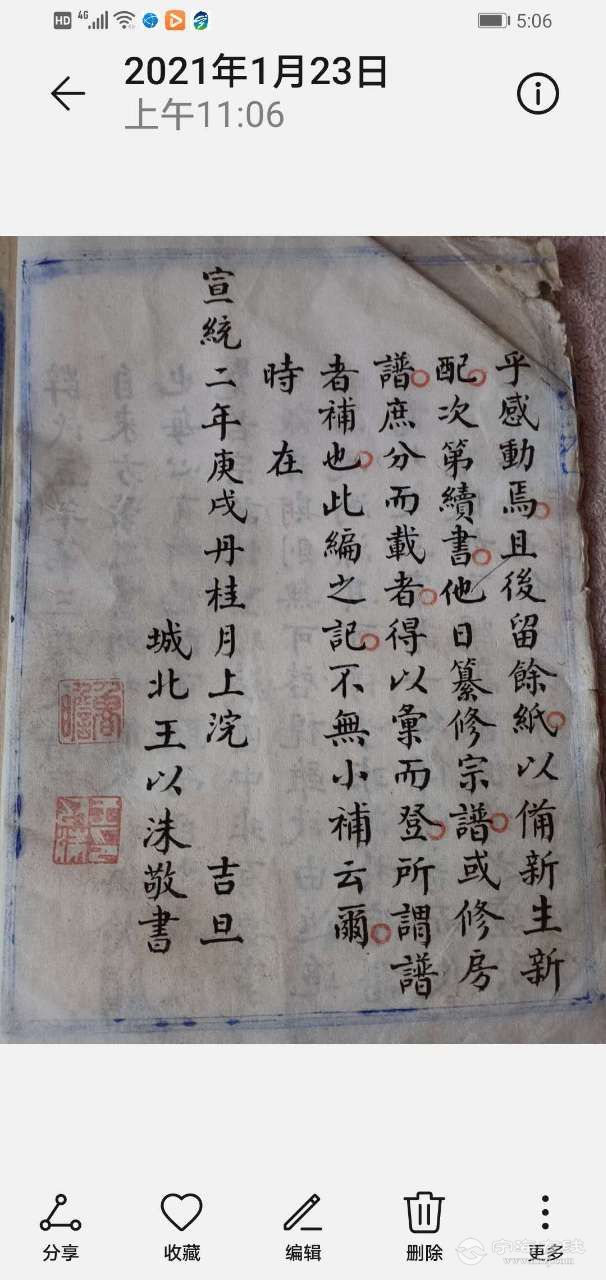 HD 4G 5:06
2021年1月23日
上午11:06
乎感動焉且後留餘紙以備新生新
配次第續書他日纂修宗譜或修房
譜庶分而載者得以彙而登所謂譜
者補也此編之記不無小補云爾
時在
宣統二年庚戌丹桂月上浣 吉旦
城北王以洙敬書
分享
收藏
编辑
删除
更多
宁海在线